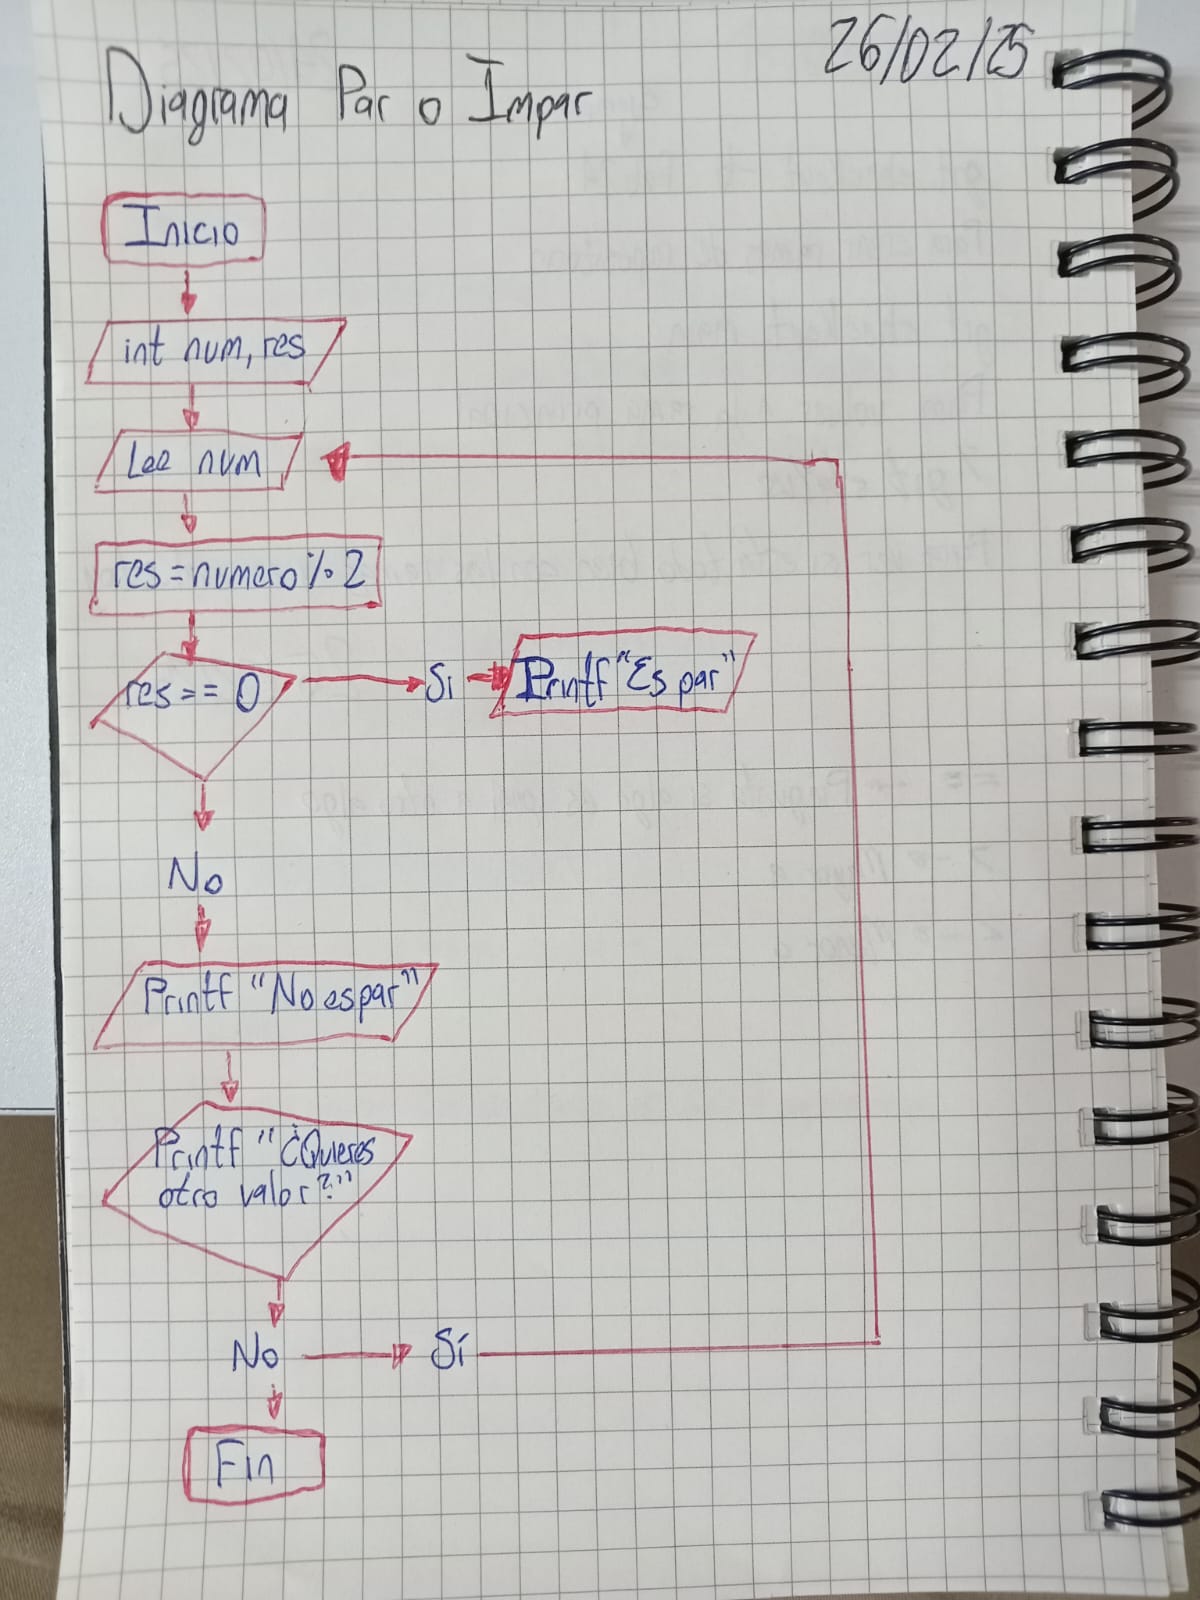 26/02/25
Diagrama Par o Impar
Inicio
int num, res
Lee num
res = numero % 2
res == 0
Si
Printf "Es par"
No
Printf "No es par"
Printf "¿Quieres
otro valor?"
No
Sí
Fin